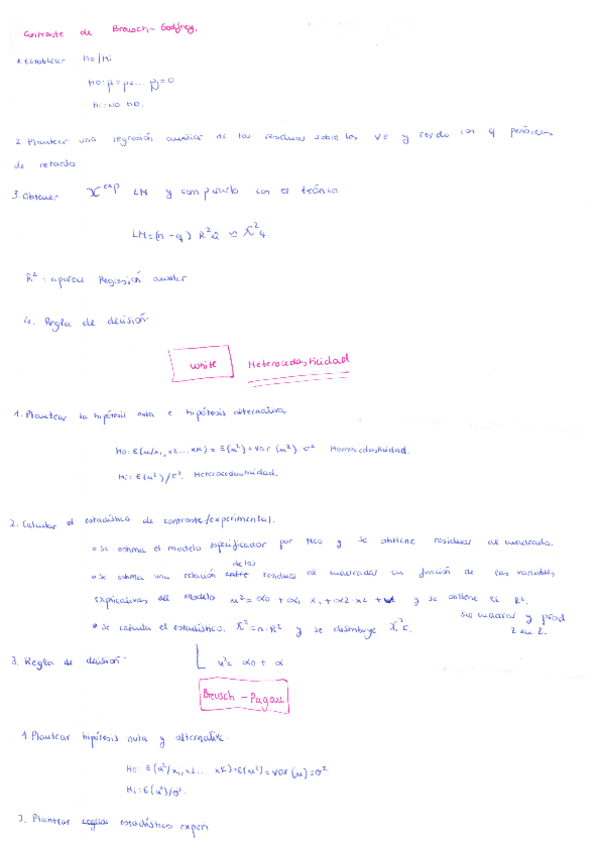 Contraste de Breusch-Godfrey.
1. Establecer H0/H1
H0: ρ1 = ρ2 ... ρj = 0
H1: NO H0.
2. Plantear una regresión auxiliar de los residuos sobre las VE y resido con q periodos
de retardo
3. Obtener χ exp LM y compararlo con el teórico
LM = (n - q) R²û ≃ χ²q.
R²: aparece Regresión auxiliar
4. Regla de decisión
White Heterocedasticidad
1. Plantear la hipótesis nula e hipótesis alternativa
H0: E(u/x1, x2 ... xK) = E(u²) = var (u²) σ² Homocedasticidad.
H1: E(u²)/σ². Heterocedasticidad.
2. Calcular el estadístico de contraste/experimental.
• Se estima el modelo especificador por MCO y se obtiene residuos al cuadrado.
• Se estima una relación entre de los residuos al cuadrados en función de las variables
explicativas del modelo u² = α0 + α1 x1 + α2 x2 + y se obtiene el R².
sus cuadrados y prod
2 en 2.
• Se calcula el estadístico. χ² = n · R² y se distribuye χ²c.
3. Regla de decisión
u² = α0 + α
Breusch - Pagan
1. Plantear hipótesis nula y alternativa.
H0: E(u²/x1, x2 ... xK) = E(u²) = var (u) = σ²
H1: E(u²)/σ².
3. Plantear regla estadístico experi